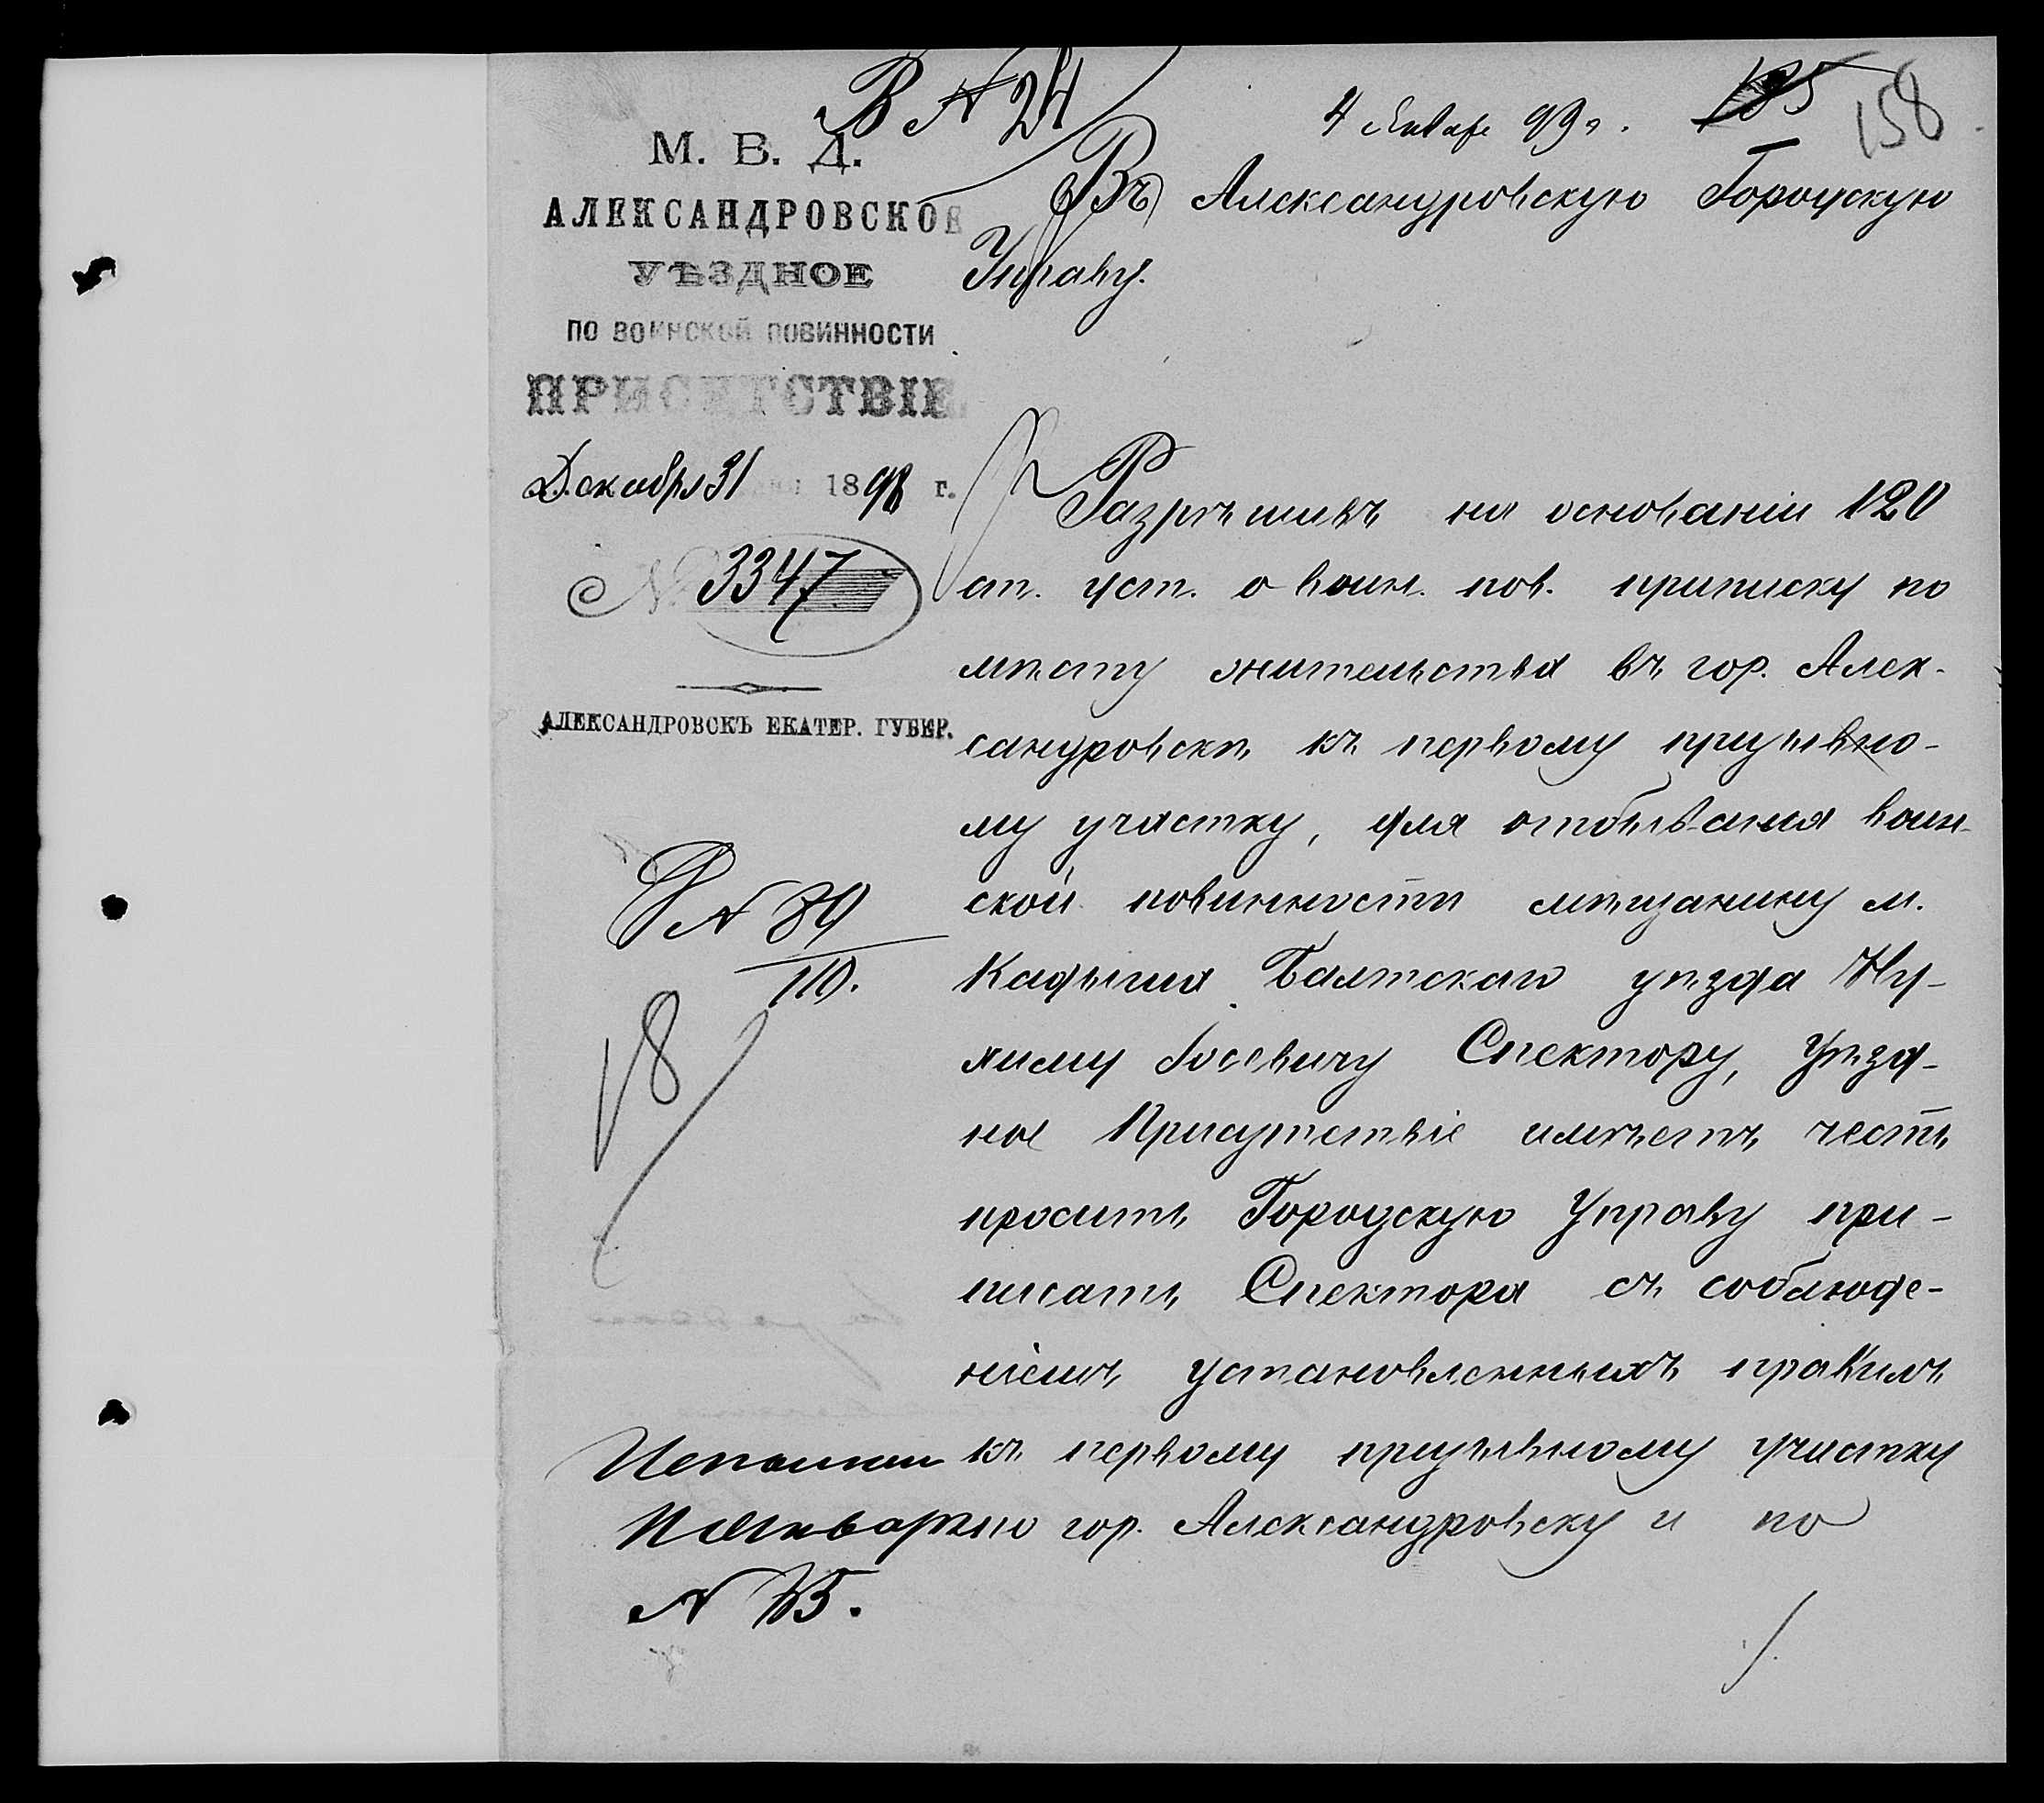 В № 24
4 Январ 99 г.
135
158
М. В. Д.
АЛЕКСАНДРОВСКОЕ
УѢЗДНОЕ
ПО ВОИНСКОЙ ПОВИННОСТИ
ПРИСУТСТВІЕ
Декабря 31 1898 г.
№ 3347
АЛЕКСАНДРОВСКЪ ЕКАТЕР. ГУБЕР.
Въ Александровскую Городскую
Управу.
Разрѣшивъ на основаніи 120
ст. уст. о воин. пов. приписку по
мѣсту жительства въ гор. Алек-
сандровскѣ къ первому призывно-
му участку, для отбыванія воин-
ской повинности мѣщанину м.
Кодыма Балтскаго уѣзда Ну-
химу Іосевичу Спектору, Уѣзд-
ное Присутствіе имѣетъ честь
просить Городскую Управу при-
писать Спектора съ соблюде-
ніемъ установленныхъ правилъ
къ первому призывному участку
по гор. Александровску и по
№ 89
110.
18
Исполнен
Январ
№ 75.